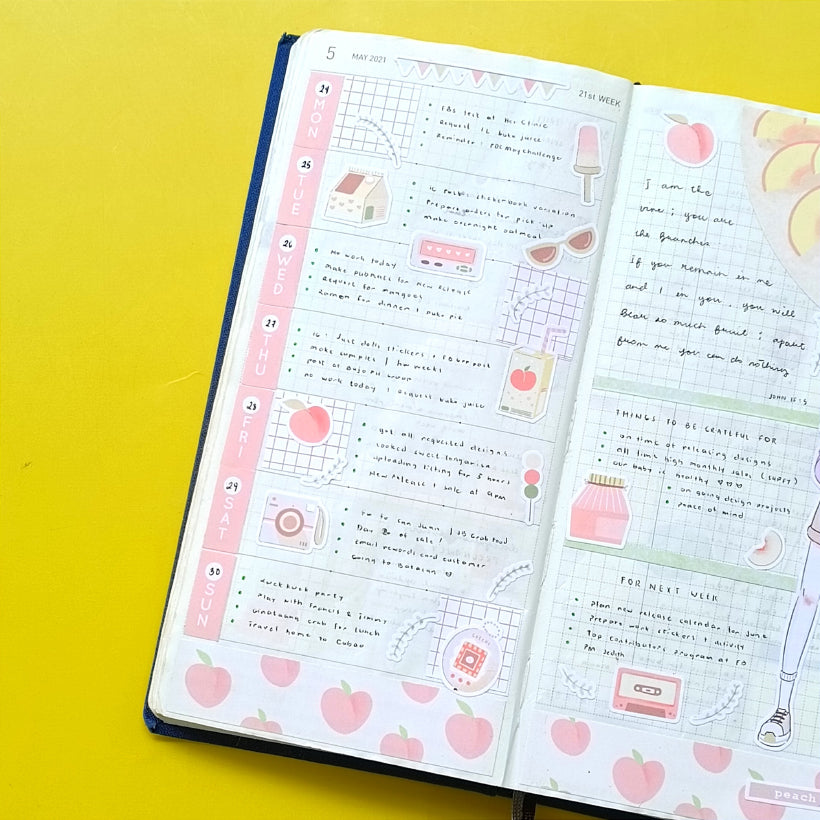 5 MAY 2021
21st WEEK
24 MON
FBS test at Hei Clinic
Request 12 buko juice
Reminder : PDC May Challenge
25 TUE
sticker book variation
Prepare orders for pick up
make overnight oatmeal
26 WED
No work today
make pubmat for new release
Request for mangoes
Ramen for dinner | buko pie
27 THU
Just dolls stickers
make samples | two weeks
no work today | Request buko juice
28 FRI
got all requested designs
cooked sweet longanisa
uploading listing for 5 hours
New release | sale at 9pm
29 SAT
to San Juan | JB Grab food
Day of sale!
email rewards card customer
Going to Bataan
30 SUN
duck duck party
Play with Francis & Jimmy
Ginataang crab for lunch
Travel home to Cubao
I am the
vine ; you are
the branches
If you remain in me
and I in you , you will
bear so much fruit ; apart
from me you can do nothing
JOHN 15:5
THINGS TO BE GRATEFUL FOR
on time of releasing designs
all time high monthly sales (SHOPEE)
our baby is healthy ♡♡♡
on going design projects
peace of mind
FOR NEXT WEEK
plan new release calendar for June
Prepare work stickers + activity
Top contributors Program at FB
PM Judith
peach